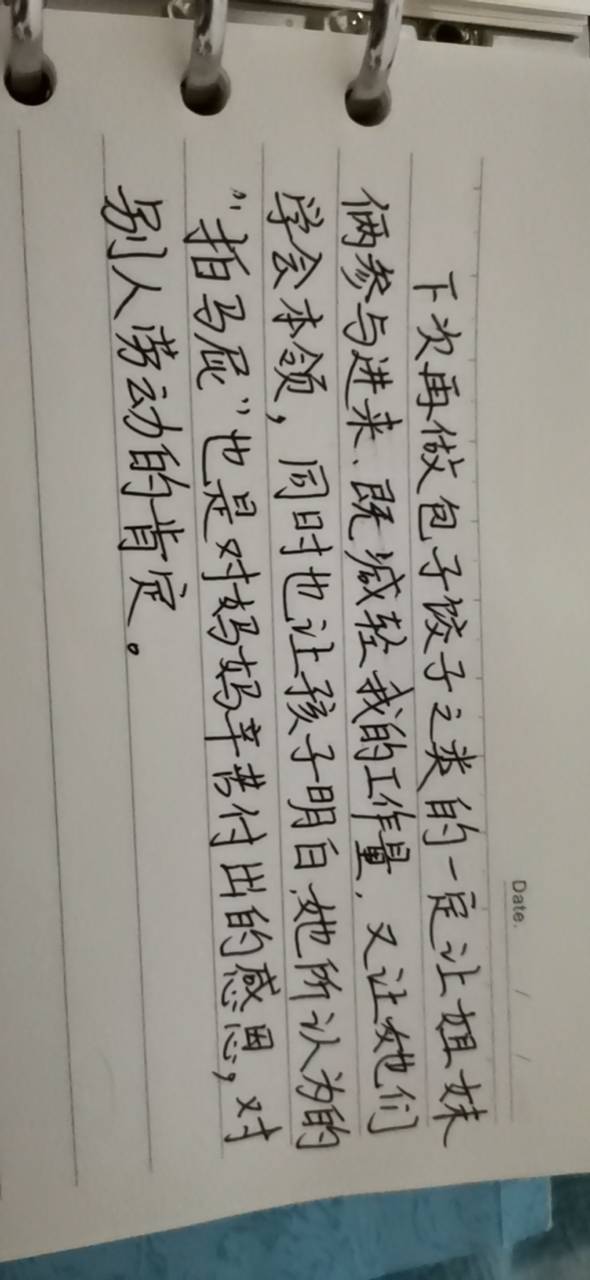 Date. / /
下次再做包子饺子之类的一定让姐妹
俩参与进来、既减轻我的工作量，又让她们
学会本领，同时也让孩子明白，她所认为的
"拍马屁"也是对妈妈辛苦付出的感恩，对
别人劳动的肯定。